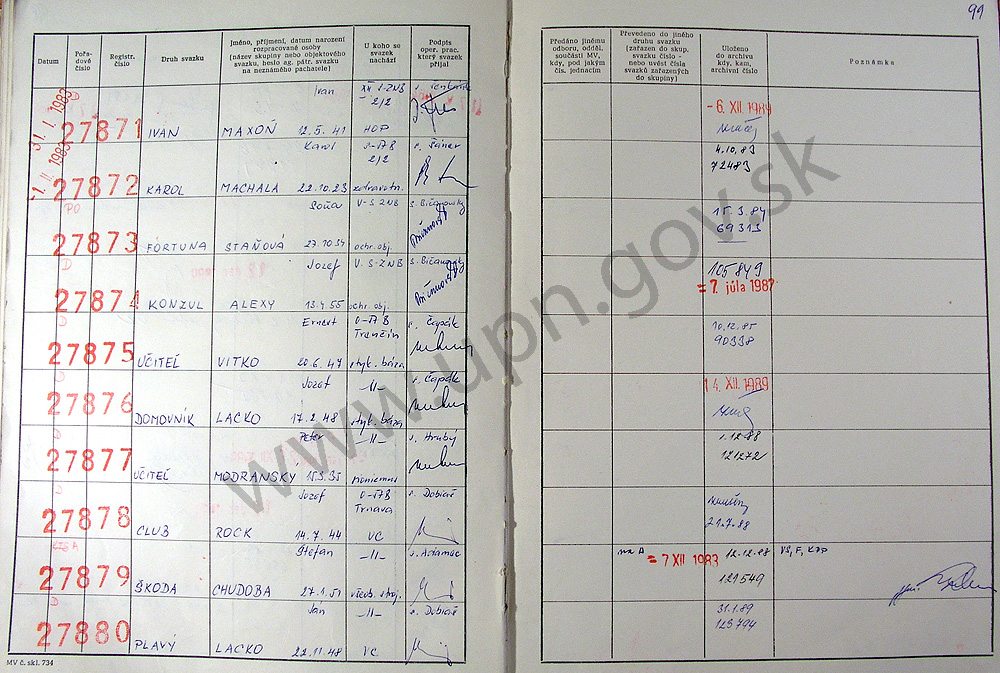 99
Datum
Pořa-
dové
číslo
Registr.
číslo
Druh svazku
Jméno, příjmení, datum narození
rozpracované osoby
(název skupiny nebo objektového
svazku, heslo ag. pátr. svazku
na neznámého pachatele)
U koho se
svazek
nachází
Podpis
oper. prac.
který svazek
přijal
Předáno jinému
odboru, odděl.
součásti MV,
kdy, pod jakým
čís. jednacím
Převedeno do jiného
druhu svazku
(zařazen do skup.
svazku číslo -
nebo uvést čísla
svazků zařazených
do skupiny)
Uloženo
do archivu
kdy, kam,
archivní číslo
Poznámka
31. 1. 1983
27871 IVAN Ivan MAXOŇ 12.5.41 2/2
- 6. XII. 1989
-1. II. 1983
27872 KAROL Karol MACHALA 22.10.23 2/2 zdravotn. s. Šaner
4.10.83
72483
PO
27873 FORTUNA Soňa STAŇOVÁ 27.10.34 V-S ZNB ochr.obj. s. Bičanovský
15.3.84
69313
D
27874 KONZUL Jozef ALEXY 13.4.55 V-S-ZNB ochr.obj. s. Bičanovský
105849
= 7. júla 1987
27875 UČITEĽ Ernest VITKO 20.6.47 Trenčín styk. báza s. Čapák
10.12.85
90338
D
27876 DOMOVNÍK Jozef LACKO 17.2.48 -11- styk. báza s. Čapák
14. XII. 1989
D
27877 UČITEĽ Peter MODRANSKY 15.3.35 -11- s. Hrubý
1.12.88
121272
27878 CLUB Jozef ROCK 14.7.44 Trnava VC s. Dobiaš
21.7.88
27879 ŠKODA Štefan CHUDOBA 27.1.51 -11- všeob. stroj. s. Adamec
na A = 7 XII 1983 12.12.88
121549
D
27880 PLAVÝ Ján LACKO 22.11.48 -11- VC s. Dobiaš
31.1.89
123794
MV č. skl. 734
www.upn.gov.sk